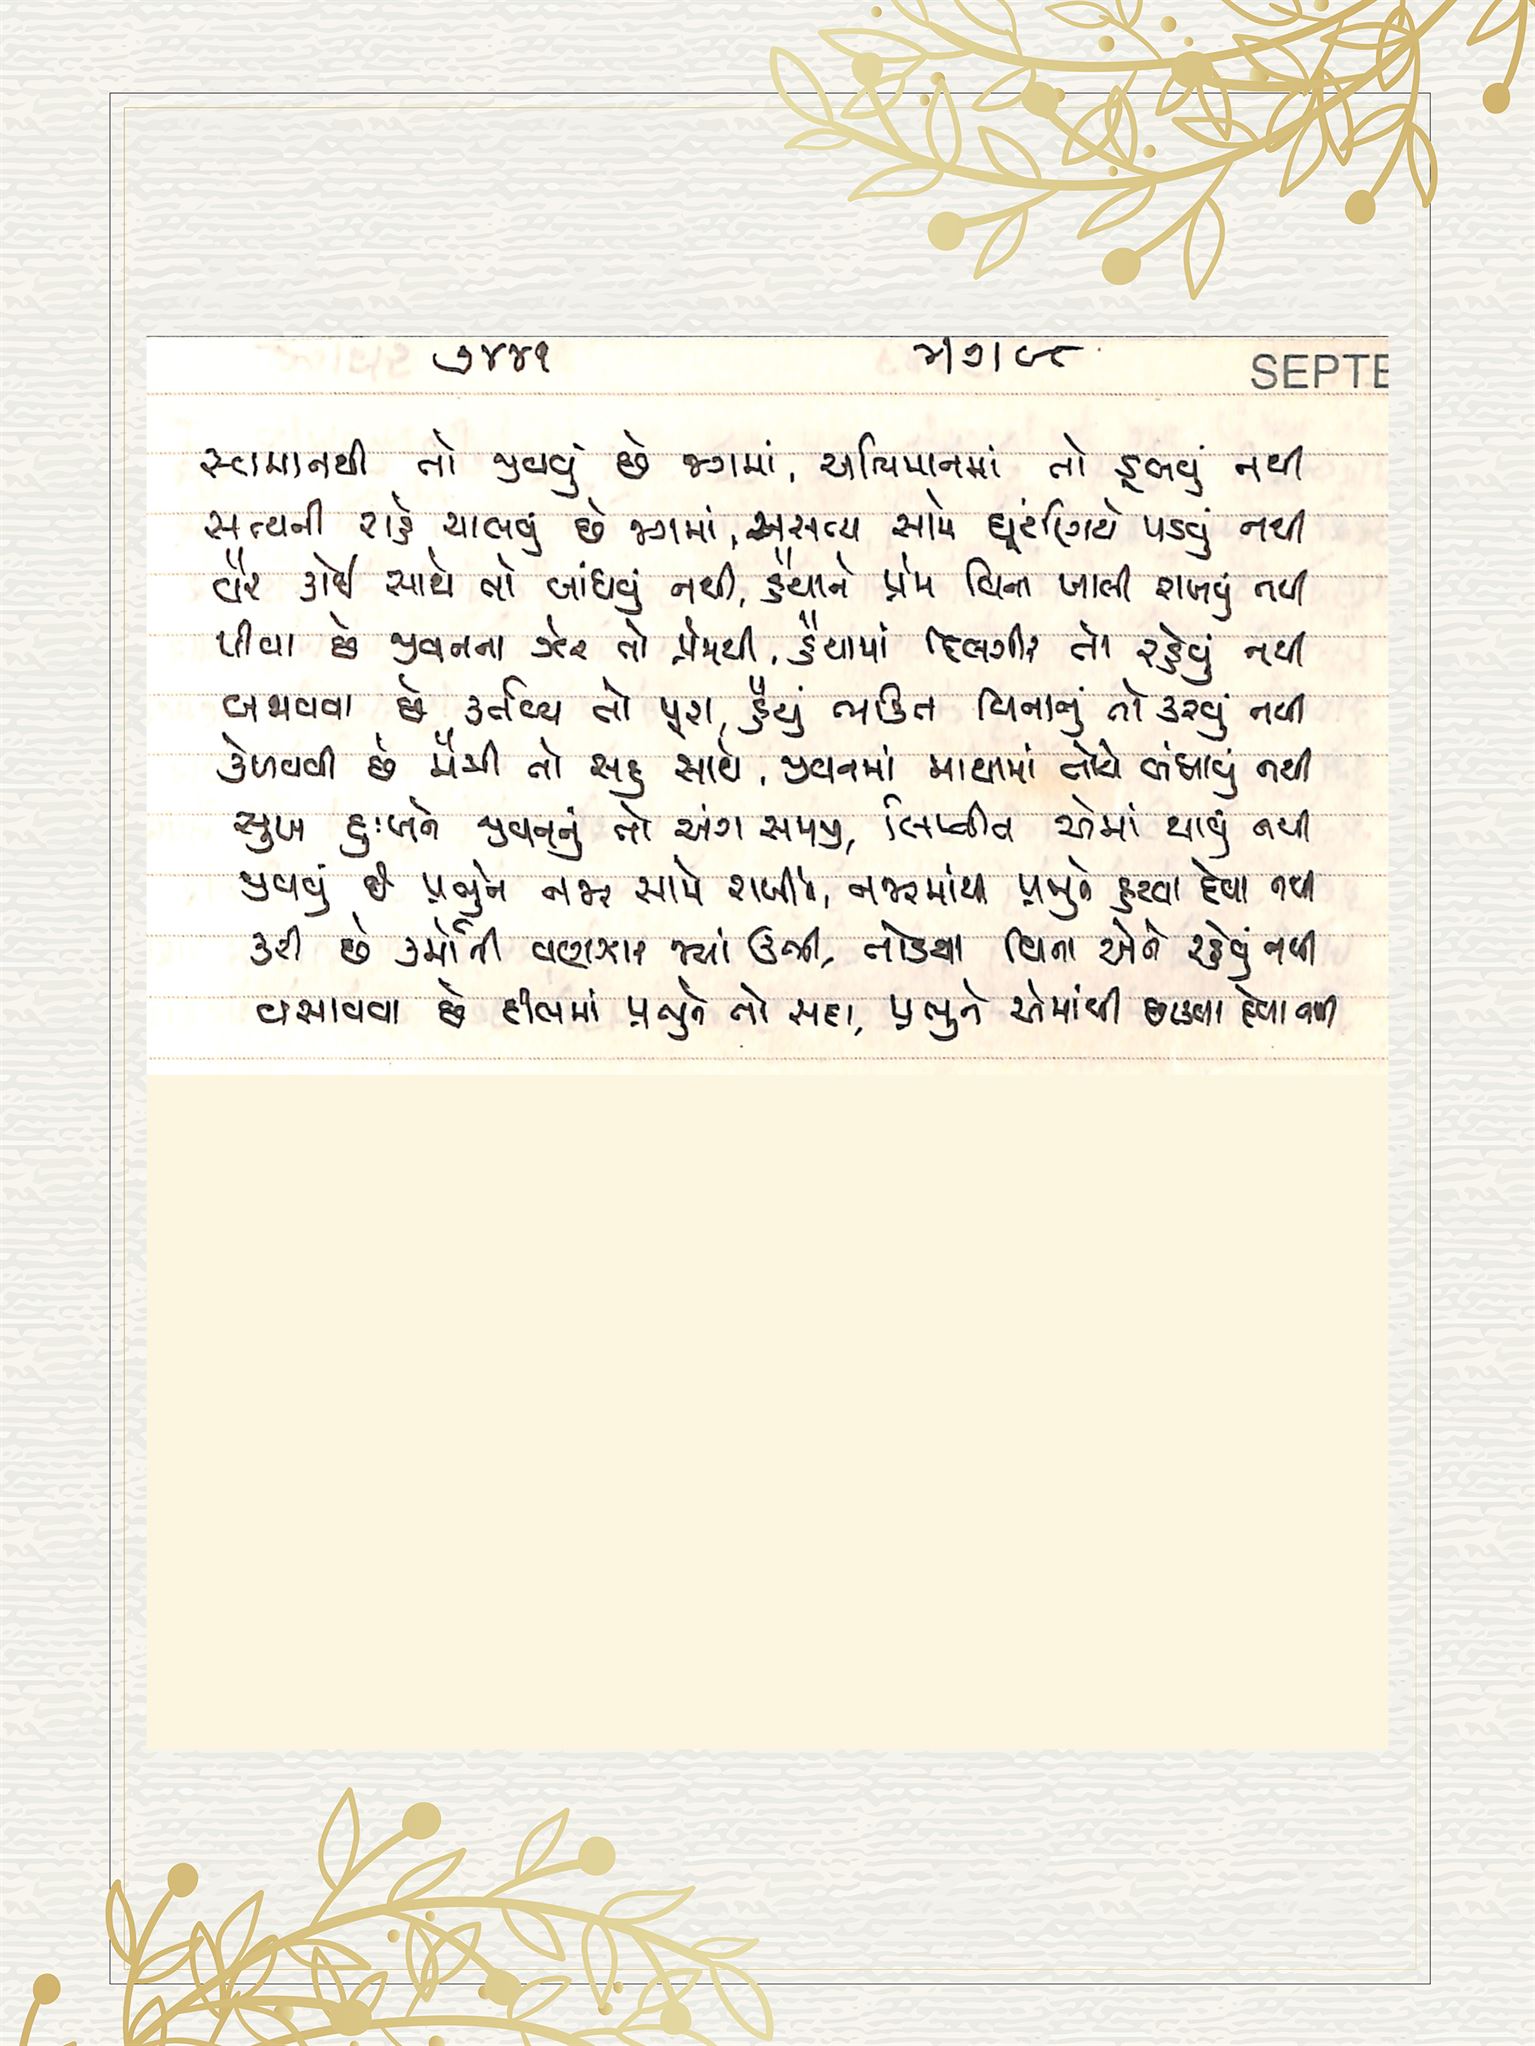 ૭૪૪૧
SEPTE
સ્વમાનથી તો જીવવું છે જગમાં, અભિમાનમાં તો ડૂબવું નથી
સત્યની રાહે ચાલવું છે જગમાં, અસત્ય સામે ઘૂંટણિયે પડવું નથી
વૈર કોઈ સાથે તો બાંધવું નથી, હૈયાને પ્રેમ વિના ખાલી રાખવું નથી
પીવા છે જીવનના ઝેર તો પ્રેમથી, હૈયામાં દિલગીર તો રહેવું નથી
બજાવવા છે કર્તવ્ય તો પૂરા, હૈયું ભક્તિ વિનાનું તો કરવું નથી
કેળવવી છે મૈત્રી તો સહુ સાથે, જીવનમાં માયામાં તોયે બંધાવું નથી
સુખ દુઃખને જીવનનું તો અંગ સમજી, લિપ્ત એમાં થાવું નથી
જીવવું છે પ્રભુને નજર સામે રાખીને, નજરમાંથી પ્રભુને હટવા દેવા નથી
કરી છે કર્મોની વણઝાર જ્યાં ઊભી, તોડયા વિના એને રહેવું નથી
વસાવવા છે દીલમાં પ્રભુને તો સદા, પ્રભુને એમાંથી છટકવા દેવા નથી